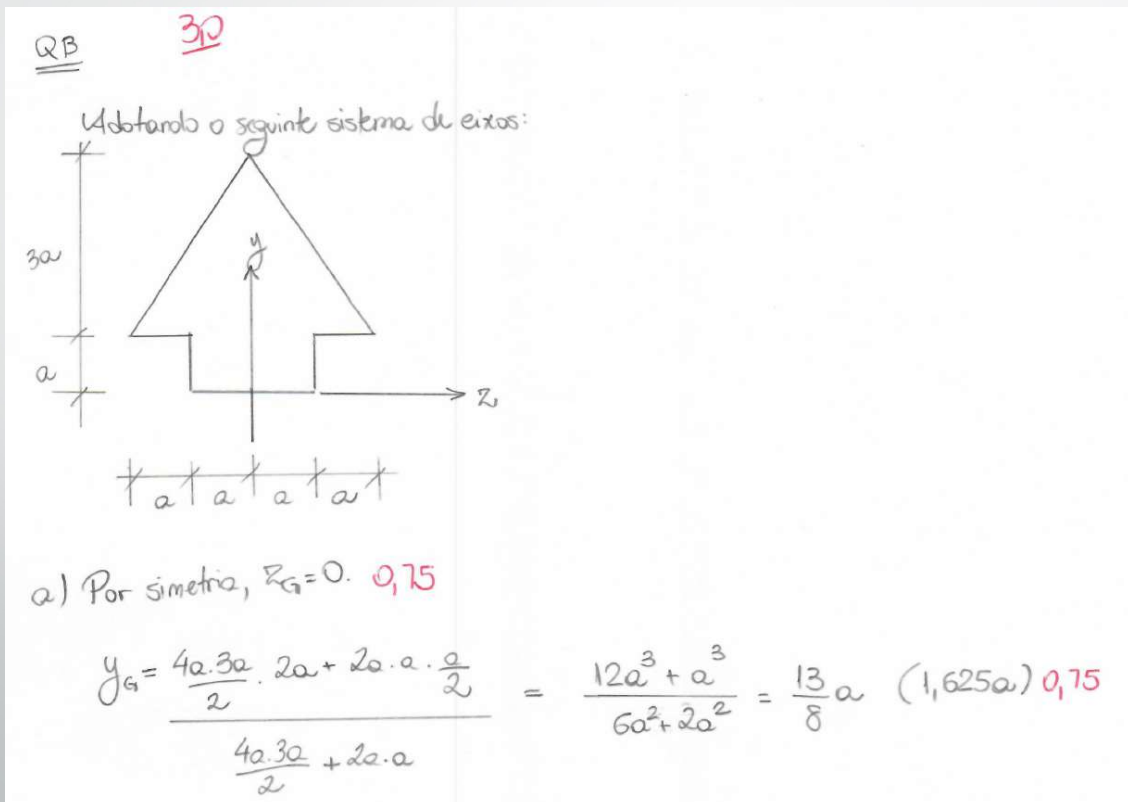 QB 3,0
Adotando o seguinte sistema de eixos:
3a
y
a
z
a a a a
a) Por simetria, z_G=0. 0,75
y_G = (4a.3a/2 . 2a + 2a.a.a/2) / (4a.3a/2 + 2a.a) = (12a³ + a³) / (6a² + 2a²) = 13/8 a (1,625a) 0,75